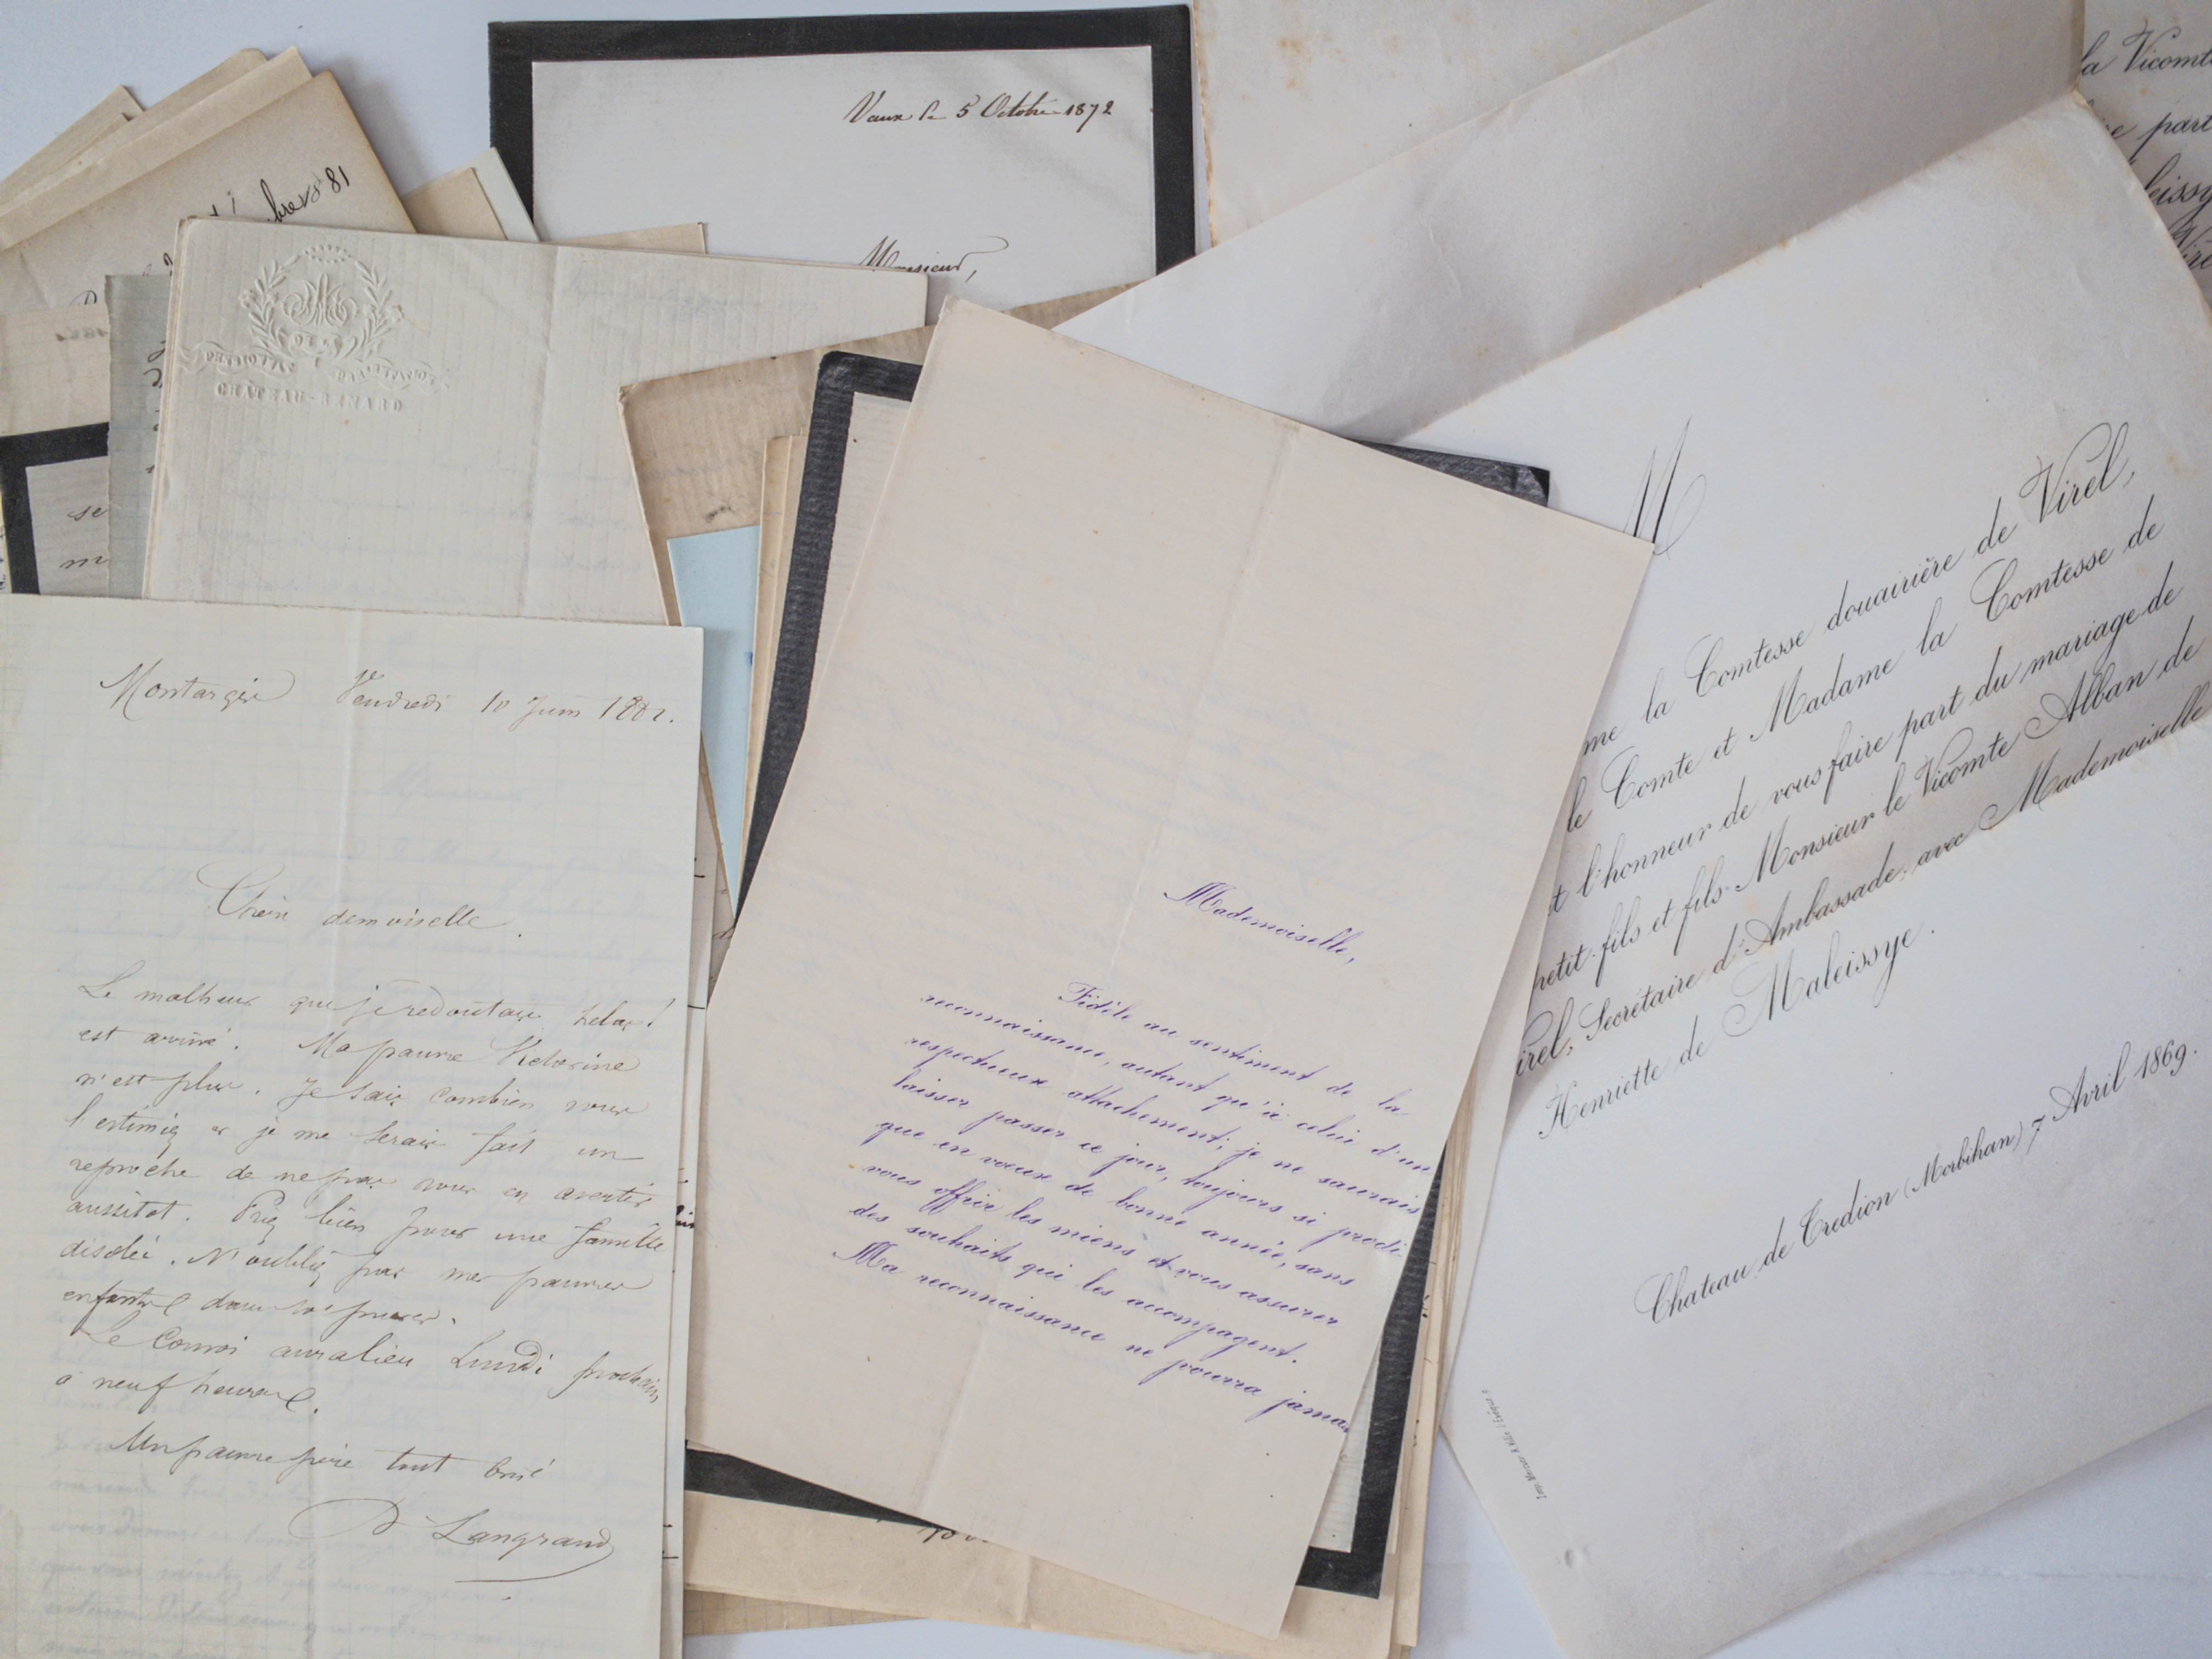 5 Octobre 1872
Monsieur,
81
CHÂTEAU-RENARD
se
m
Montargis Vendredi 10 Juin 188
demoiselle.
Le malheur que je redoutais helas!
est arrivé. Ma pauvre
n'est plus. Je sais combien vous
l'estimiez et je me serais fait un
reproche de ne pas vous en avertir
aussitot. Priez bien pour une famille
désolée. N'oubliez pas mes pauvres
enfants dans vos prieres.
Le Convoi aura lieu Lundi prochain
à neuf heures.
Un pauvre père tout brisé
D Langrand
Mademoiselle,
Fidèle au sentiment de la
reconnaissance, autant qu'à celui d'un
respectueux attachement, je ne saurais
laisser passer ce jour, toujours si prodi
que en vœux de bonne année, sans
vous offrir les miens et vous assurer
des souhaits qui les accompagent.
Ma reconnaissance ne pourra jamais
la Vicomte
re part
leissy
M
me la Comtesse douairière de Virel,
le Comte et Madame la Comtesse de
t l'honneur de vous faire part du mariage de
petit-fils et fils Monsieur le Vicomte Alban de
irel, Secrétaire d'Ambassade, avec Mademoiselle
Henriette de Maleissye.
Chateau de Tredion (Morbihan) 7 Avril 1869.